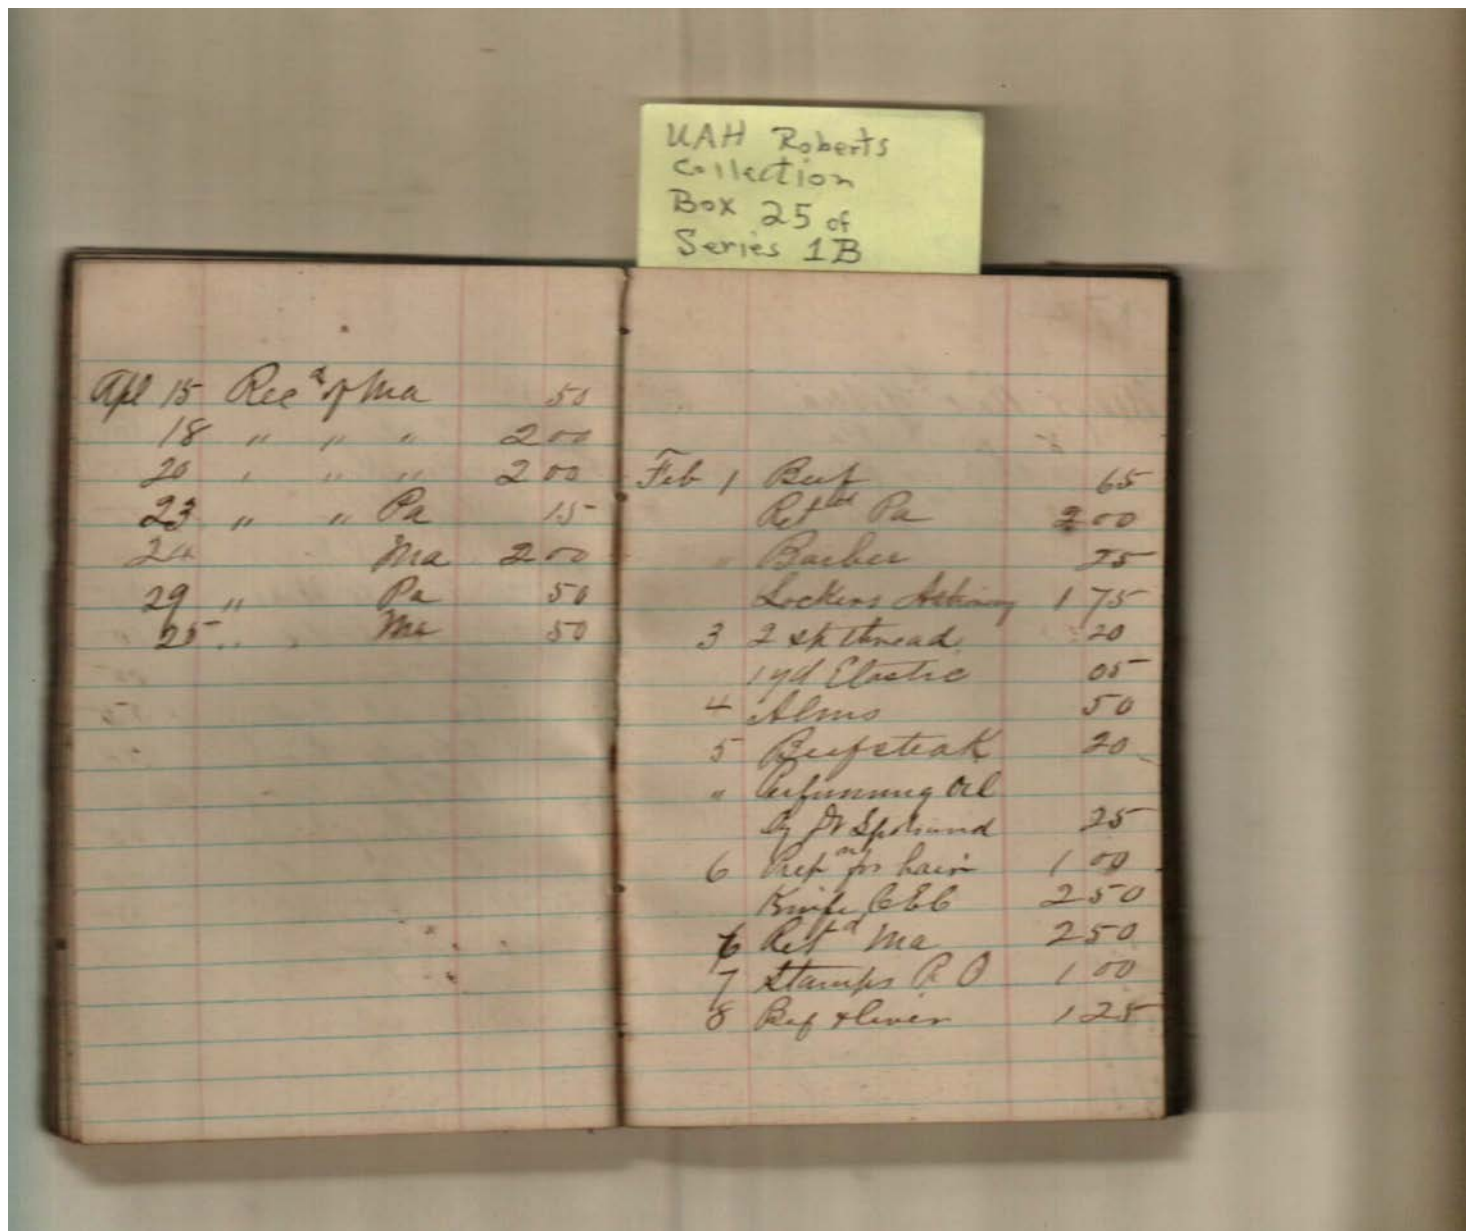 UAH Roberts
Collection
Box 25 of
Series 1B
Apl 15 Recd of Ma 50
18 " " " 2 00
20 " " " 2 00
23 " " Pa 15
24 Ma 2 00
29 " Pa 50
25 " " Ma 50
Feb 1 Beef 65
Retd Pa 2 00
" Barber 25
Lockens 1 75
3 2 sp thread 20
1 yd Elastic 05
4 Alms 50
5 Beefsteak 20
" Perfuming Oil
By JW 25
6 Prepn for hair 1 00
Knife CEC 2 50
6 Retd Ma 2 50
7 Stamps P O 1 00
8 Beef & liver 1 25